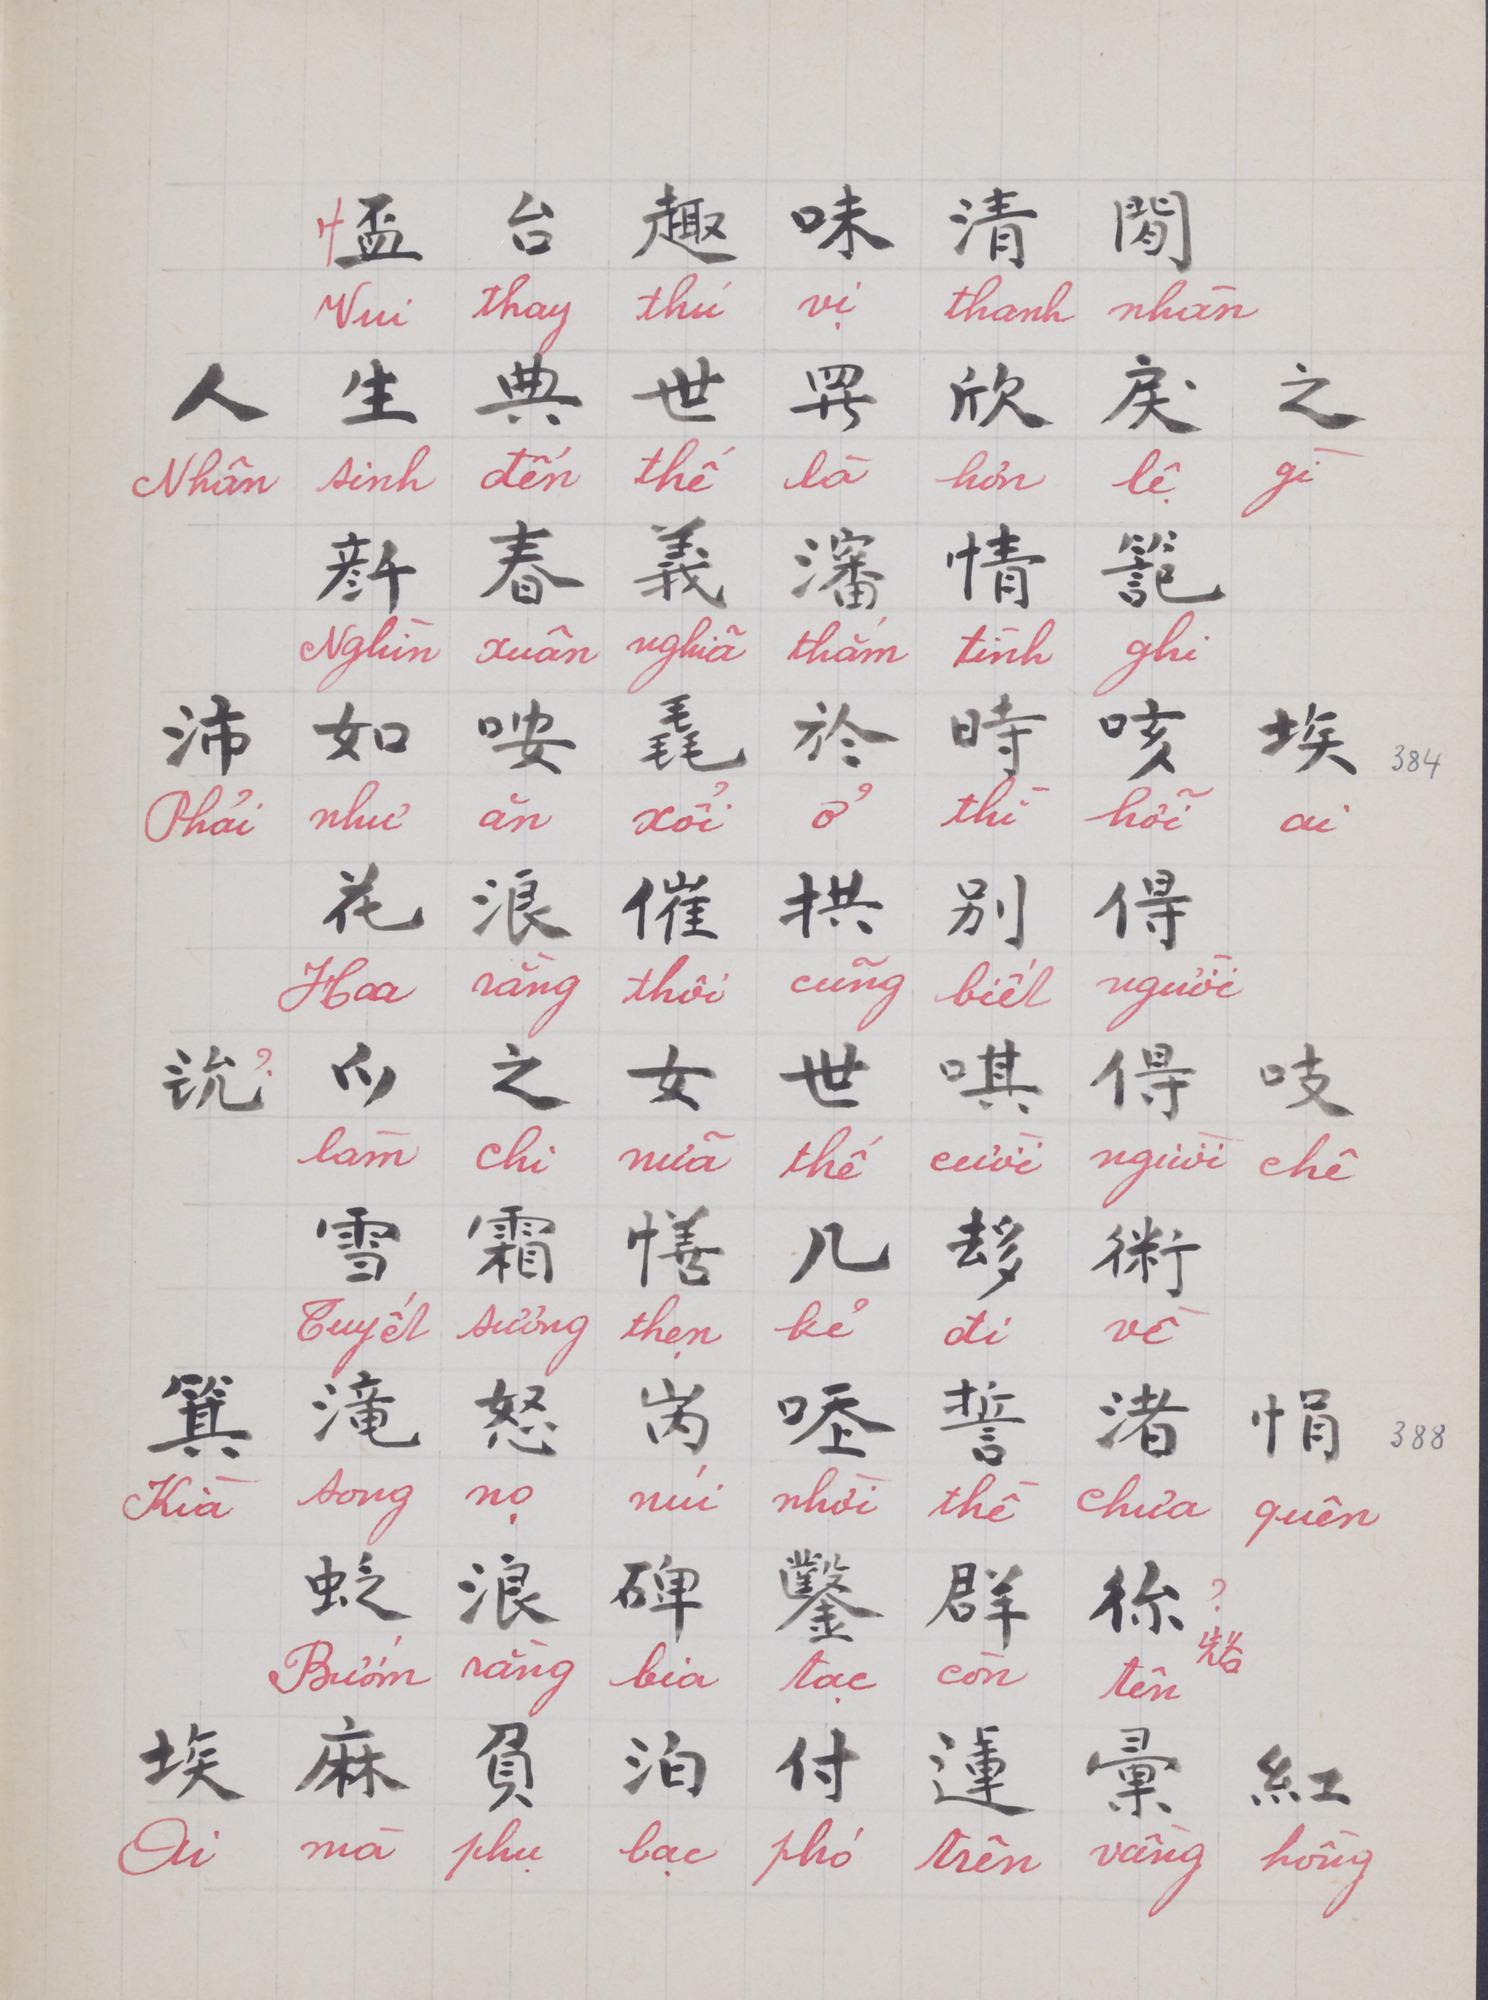 㤔 台 趣 味 清 閒
Vui thay thú vị thanh nhàn
人 生 典 世 𱺵 欣 戾 之
Nhân sinh đến thế là hơn lệ gì
𠦳 春 義 瀋 情 𥱬
Nghìn xuân nghĩa thắm tình ghi
沛 如 咹 毳 於 時 咳 埃 384
Phải như ăn xổi ở thì hỡi ai
花 浪 催 拱 別 㝵
Hoa rằng thôi cũng biết người
? 之 女 世 唭 㝵 吱
làm chi nữa thế cười người chê
雪 霜 几 𠫾 術
Tuyết sương thẹn kẻ đi về
箕 滝 怒 𡶀 誓 渚 悁 388
Kìa song nọ núi nhời thề chưa quên
浪 碑 鑿 群 ?
Bướm rằng bia tạc còn tên
埃 麻 負 泊 付 連 暈 紅
Ai mà phụ bạc phó trên vầng hồng